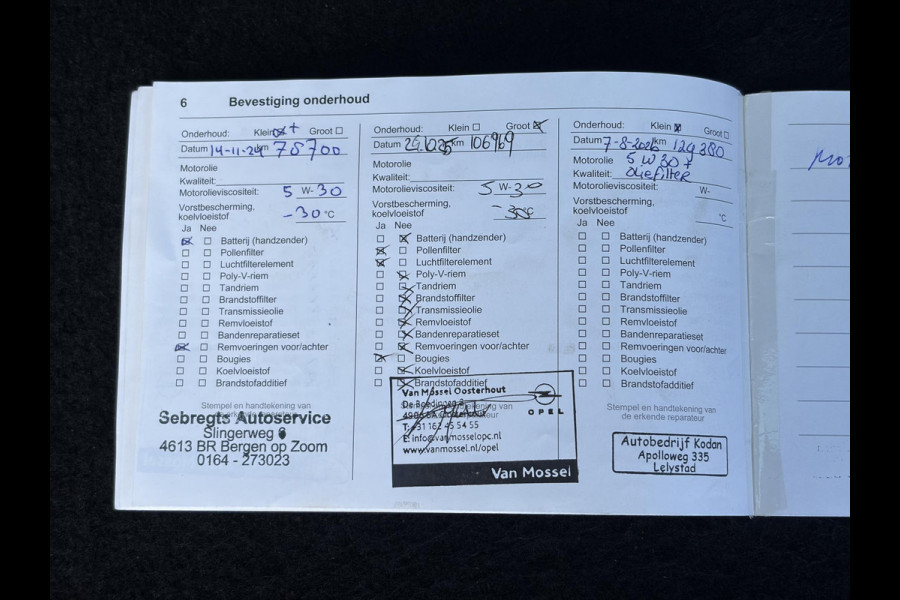 6 Bevestiging onderhoud
Onderhoud: Klein + Groot
Datum 14-11-24 km 78700
Motorolie
Kwaliteit:
Motorolieviscositeit: 5 W-30
Vorstbescherming,
koelvloeistof -30 °C
Ja Nee
Batterij (handzender)
Pollenfilter
Luchtfilterelement
Poly-V-riem
Tandriem
Brandstoffilter
Transmissieolie
Remvloeistof
Bandenreparatieset
Remvoeringen voor/achter
Bougies
Koelvloeistof
Brandstofadditief
Stempel en handtekening van
Sebregts Autoservice
Slingerweg 6
4613 BR Bergen op Zoom
0164 - 273023
Onderhoud: Klein Groot
Datum km 106969
Motorolie
Kwaliteit:
Motorolieviscositeit: 5 W-30
Vorstbescherming,
koelvloeistof
Ja Nee
Batterij (handzender)
Pollenfilter
Luchtfilterelement
Poly-V-riem
Tandriem
Brandstoffilter
Transmissieolie
Remvloeistof
Bandenreparatieset
Remvoeringen voor/achter
Bougies
Koelvloeistof
Brandstofadditief
Van Mossel Oosterhout
OPEL
www.vanmosselopc.nl/opel
Van Mossel
Onderhoud: Klein Groot
Datum 7-8-2026 km 129380
Motorolie 5 W 30 +
Kwaliteit: oliefilter
Motorolieviscositeit: W-
Vorstbescherming,
koelvloeistof °C
Ja Nee
Batterij (handzender)
Pollenfilter
Luchtfilterelement
Poly-V-riem
Tandriem
Brandstoffilter
Transmissieolie
Remvloeistof
Bandenreparatieset
Remvoeringen voor/achter
Bougies
Koelvloeistof
Brandstofadditief
Stempel en handtekening van
de erkende reparateur
Autobedrijf Kodan
Apolloweg 335
Lelystad